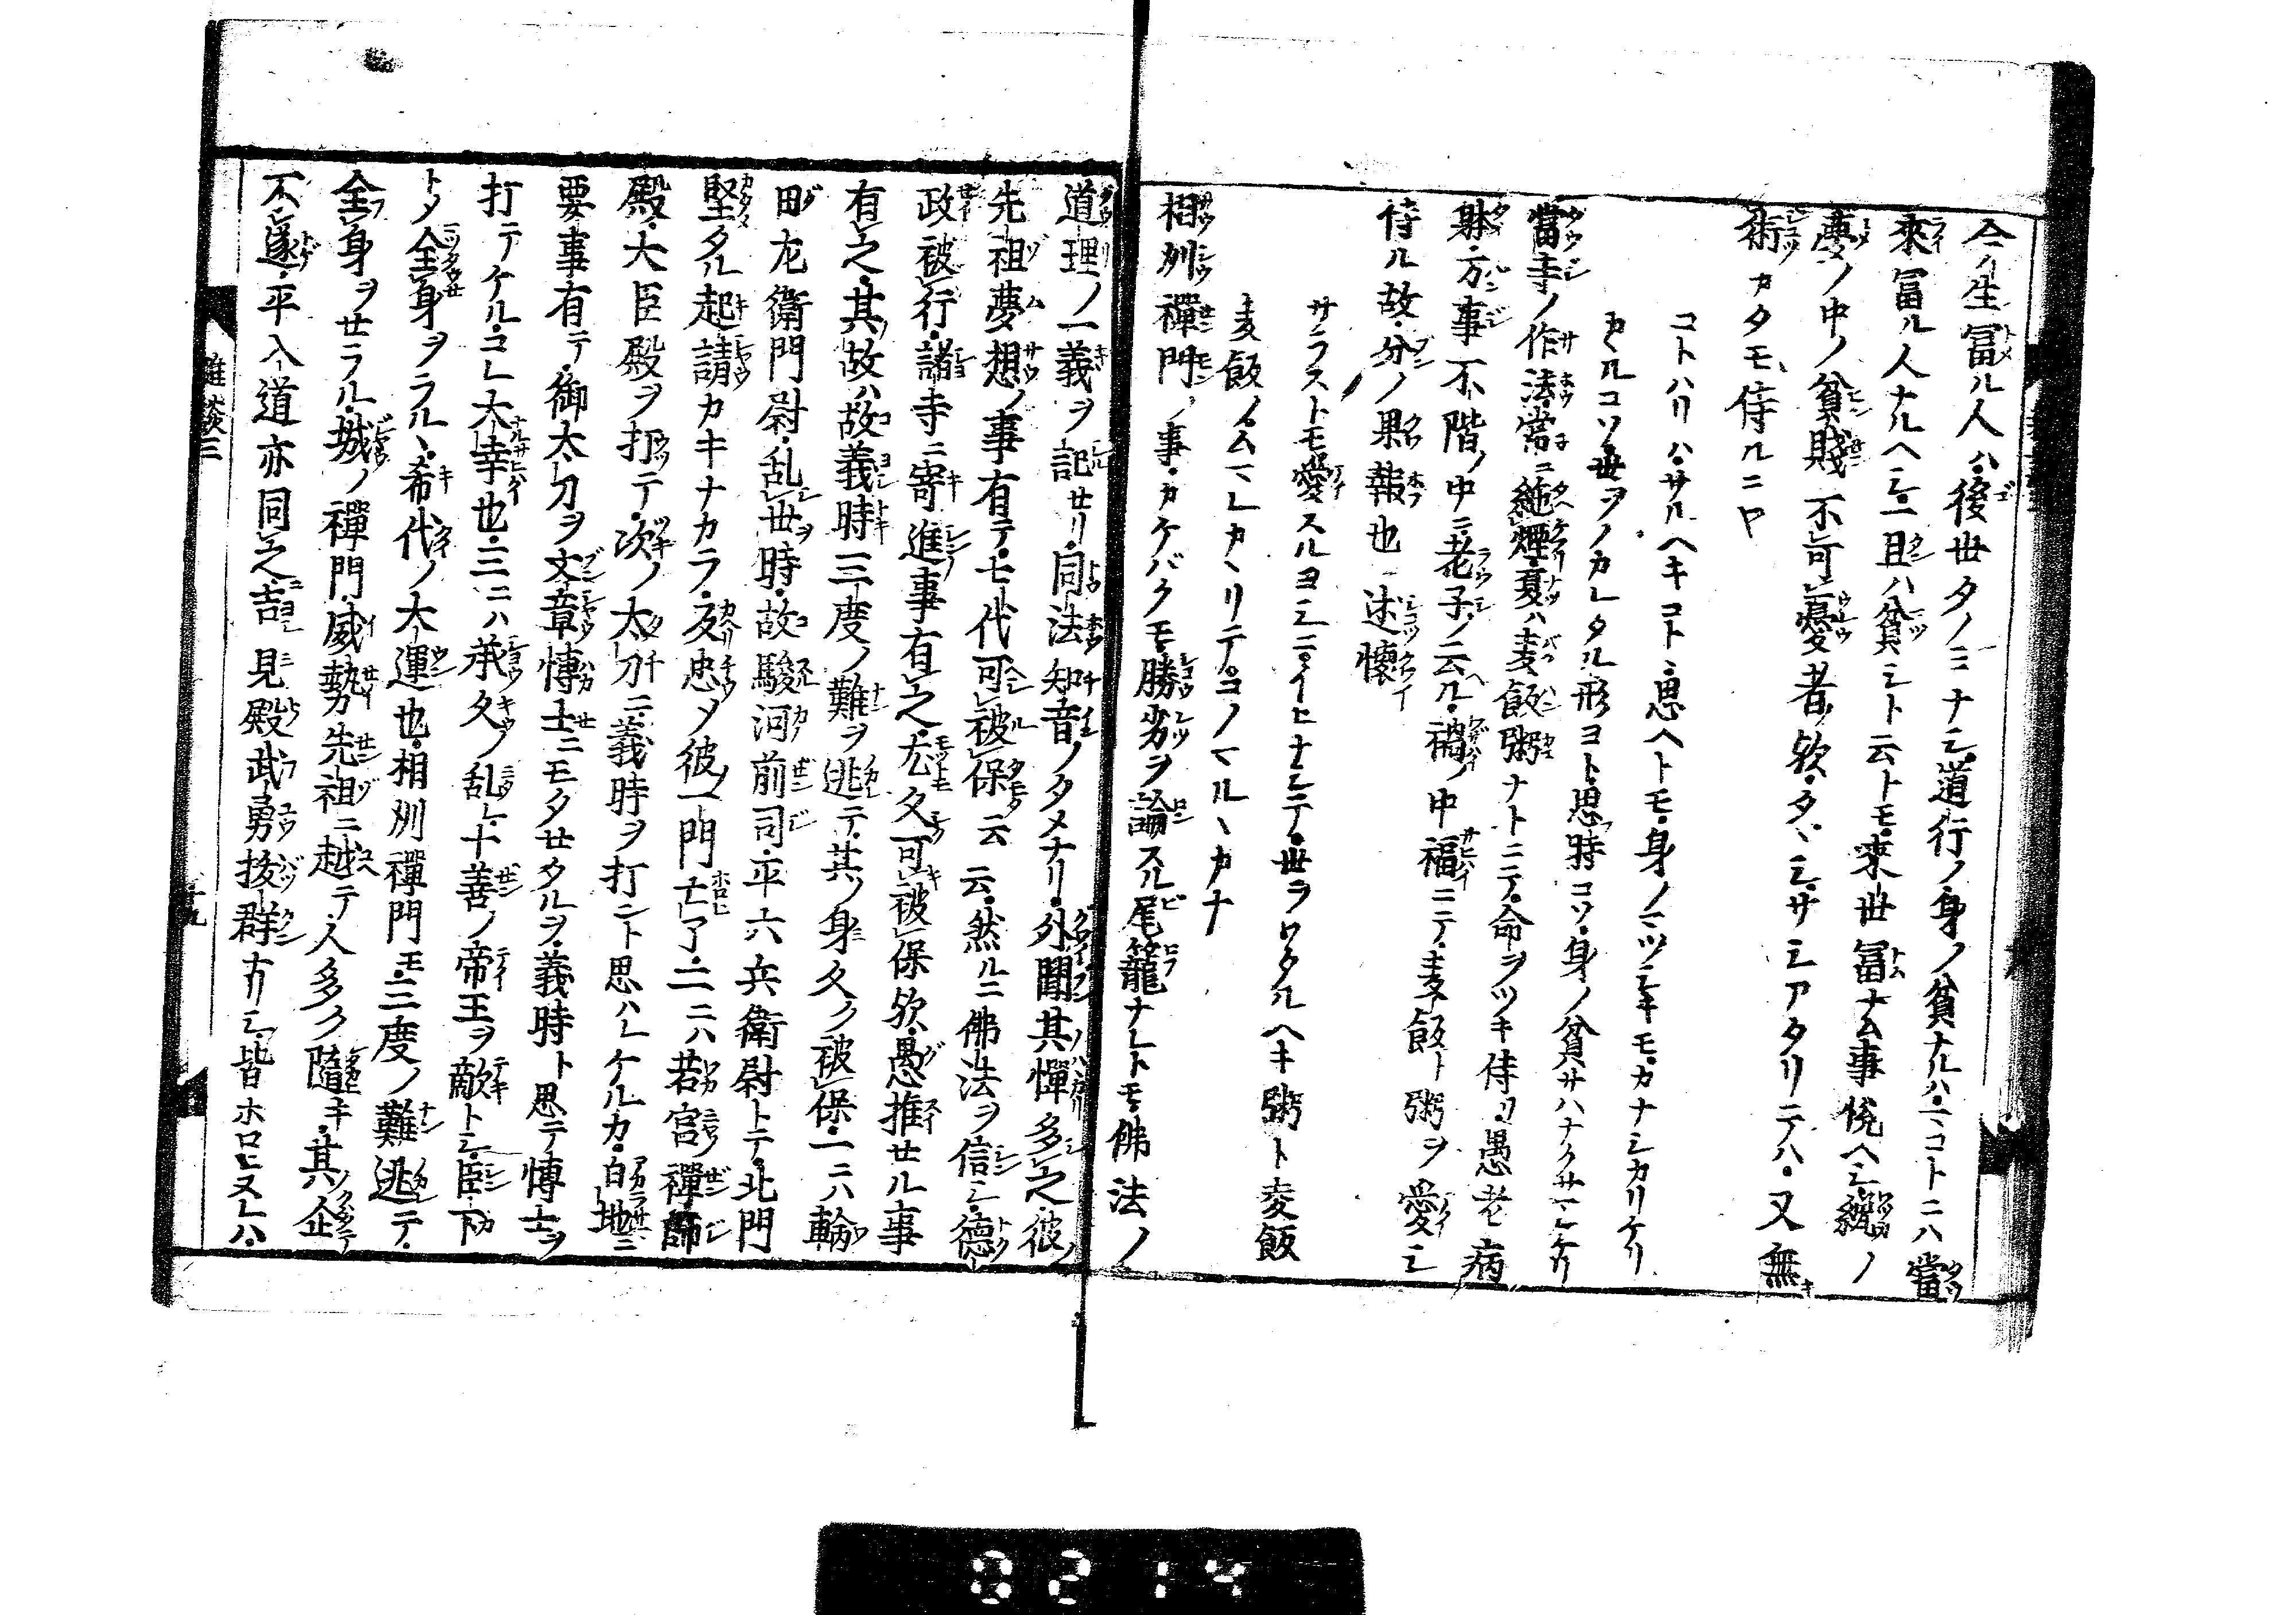 今ノ生冨ル人ハ後世タノミナシ道行ノ身ノ貧ナルハ一コトニハ當
來冨ル人ナルヘシ一旦ハ貧シト云トモ來世冨ナム事悦ヘシ纔ノ
夢ノ中ノ貧賤不可憂者歟タヽシサシアタリテハ又無
術カタモ侍ルニヤ
コトハリハサルヘキコト思ヘトモ身ノマツシキモカナシカリケリ
カヽルコソ世ヲノカレタル形ヨト思時コソ身ノ貧サハナクサマレケリ
當寺ノ作法常ニ絶煙夏ハ麦飯粥ナトニテ命ヲツキ侍リ愚老病
躰万事不階ノ中ニ老子ノ云ル禍ノ中福ニテ麦飯ト粥ヲ愛シ
侍ル故分ノ果報也述懷
サラストモ愛スルヨシニイヒナシテ世ヲワタルヘキ粥ト麦飯
麦飯ノムマレカハリテコノマルヽカナ
相刕禪門ノ事カケバクモ勝劣ヲ論スル尾籠ナレトモ佛法ノ
道理ノ一義ヲ記セリ同法知音ノタメナリ外聞其憚多之彼ノ
先祖夢想ノ事有テ七代可被保云云然ルニ佛法ヲ信シ德
政被行諸寺ニ寄進事有之尤久可被保歟愚推セル事
有之其故ハ故義時三度ノ難ヲ逃テ其ノ身久ク被保一ニハ輪
田左衛門尉乱世時故駿河前司平六兵衛尉トテ北門
堅タル起請カキナカラ友忠メ彼一門亡了二ニハ若宮禪師
殿大臣殿ヲ打テ次ノ太刀ニ義時ヲ打ニト思ハレケルカ白地ニ
要事有テ御太刀ヲ文章博士ニモタセタルヲ義時ト思テ博士ヲ
打テケルコレ大幸也三ニハ承久ノ乱レ十善ノ帝王ヲ敵トシ臣下
トメ全身ヲラルヽ希代ノ大運也相刕禪門モ三度ノ難逃テ
全身ヲセラル城ノ禪門威勢先祖ニ越テ人多ク隨キ其企
不遂平入道亦同之吉見殿武勇拔群有シ皆ホロヒヌレハ
雜談三